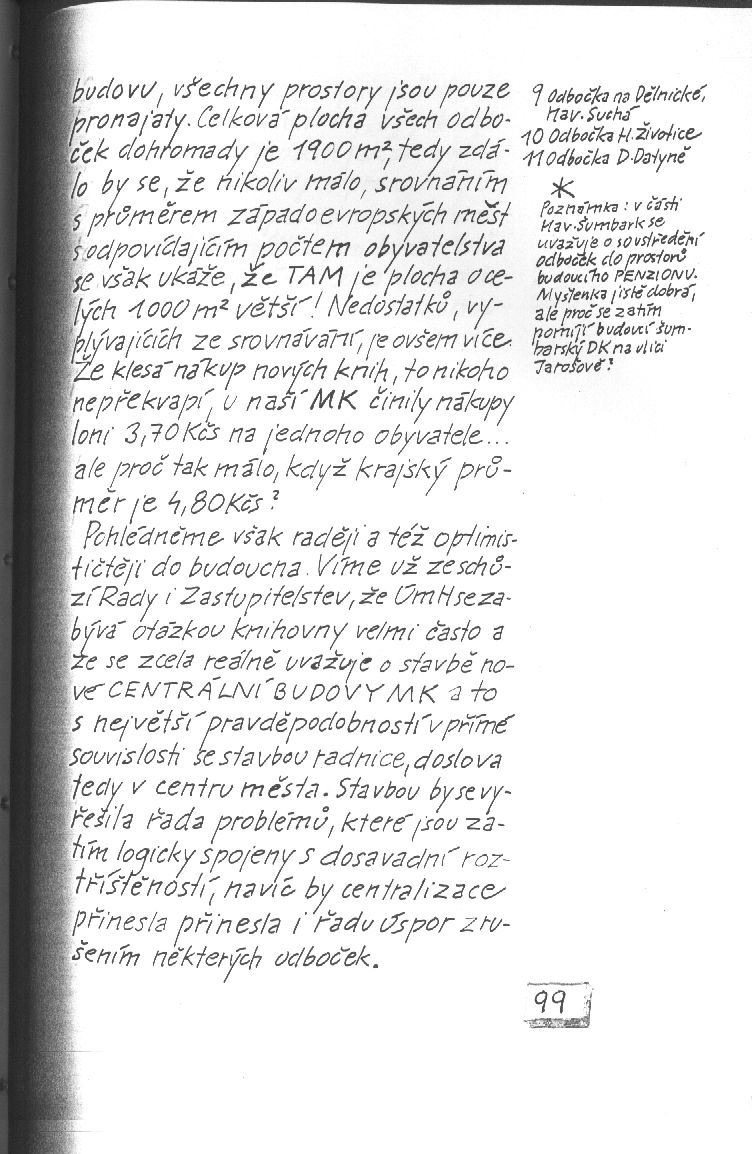 budovu, všechny prostory jsou pouze
pronajaty. Celková plocha všech odbo-
ček dohromady je 1900 m², tedy zdá-
lo by se, že nikoliv málo, srovnáním
s průměrem západoevropských měst
s odpovídajícím počtem obyvatelstva
se však ukáže, že TAM je plocha o ce-
lých 1000 m² větší! Nedostatků, vy-
plývajících ze srovnávání, je ovšem více.
Že klesá nákup nových knih, to nikoho
nepřekvapí, u naší MK činily nákupy
loni 3,70 Kčs na jednoho obyvatele...
ale proč tak málo, když krajský prů-
měr je 4,80 Kčs?
Pohlédněme však raději a též optimis-
tičtěji do budoucna. Víme už ze schů-
zí Rady i Zastupitelstev, že ÚmH se za-
bývá otázkou knihovny velmi často a
že se zcela reálně uvažuje o stavbě no-
vé CENTRÁLNÍ BUDOVY MK a to
s největší pravděpodobností v přímé
souvislosti se stavbou radnice, doslova
tedy v centru města. Stavbou by se vy-
řešila řada problémů, které jsou za-
tím logicky spojeny s dosavadní roz-
tříštěností, navíc by centralizace
přinesla přinesla i řadu úspor zru-
šením některých odboček.
9 Odbočka na Dělnické,
Hav. Suchá
10 Odbočka H. Životice
11 Odbočka D. Datyně
*
Poznámka: v části
Hav. Šumbark se
uvažuje o soustředění
odboček do prostorů
budoucího PENZIONU.
Myšlenka jistě dobrá,
ale proč se zatím
pomíjí budoucí šum-
barský DK na ulici
Jarošově?
99